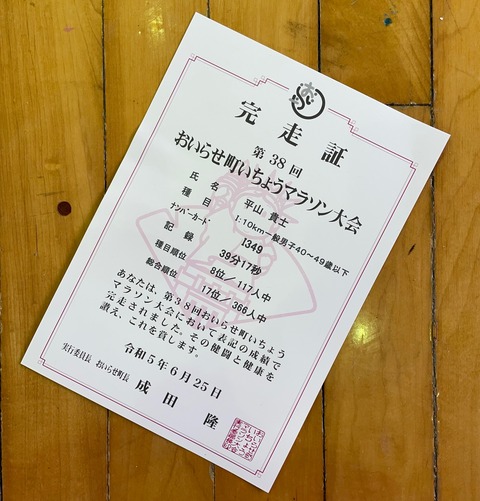 完走証
第38回
おいらせ町いちょうマラソン大会
氏名 平山 貴士
種目 1:10km 一般男子40~49歳以下
ナンバーカード 1349
記録 39分17秒
種目順位 8位/117人中
総合順位 17位/366人中
あなたは、第38回おいらせ町いちょう
マラソン大会において表記の成績で
完走されました。その健闘と健康を
讃え、これを賞します。
令和5年6月25日
実行委員長 おいらせ町長 成田 隆